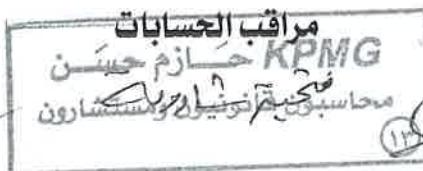 مراقب الحسابات
KPMG حــازم حســن
محاسبون قانونيون ومستشارون
(١٣)